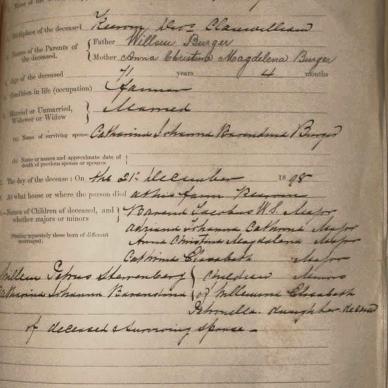 Birthplace of the deceased
Div: Clanwilliam
Names of the Parents of the deceased. Father Willem Burger
Mother Anna Christina Magdalena Burger
Age of the deceased 71 years 4 months
Condition in life (occupation) Farmer
Married or Unmarried, Widower or Widow Married
(a) Name of surviving spouse Catharina Johanna Barendina Burger
(b) Name or names and approximate date of death of previous spouse or spouses
The day of the decease: On the 21st December 1898
At what house or where the person died at his farm
Names of Children of deceased, and whether majors or minors
Barend Jacobus W.S. Major
Adriana Johanna Cathrina Major
Anna Christina Magdalena Major
Cathrina Elisabeth Major
Willem Petrus children Minors
Catharina Johanna Barendina of Willemina Elisabeth
Petronella daughter
of deceased & surviving spouse